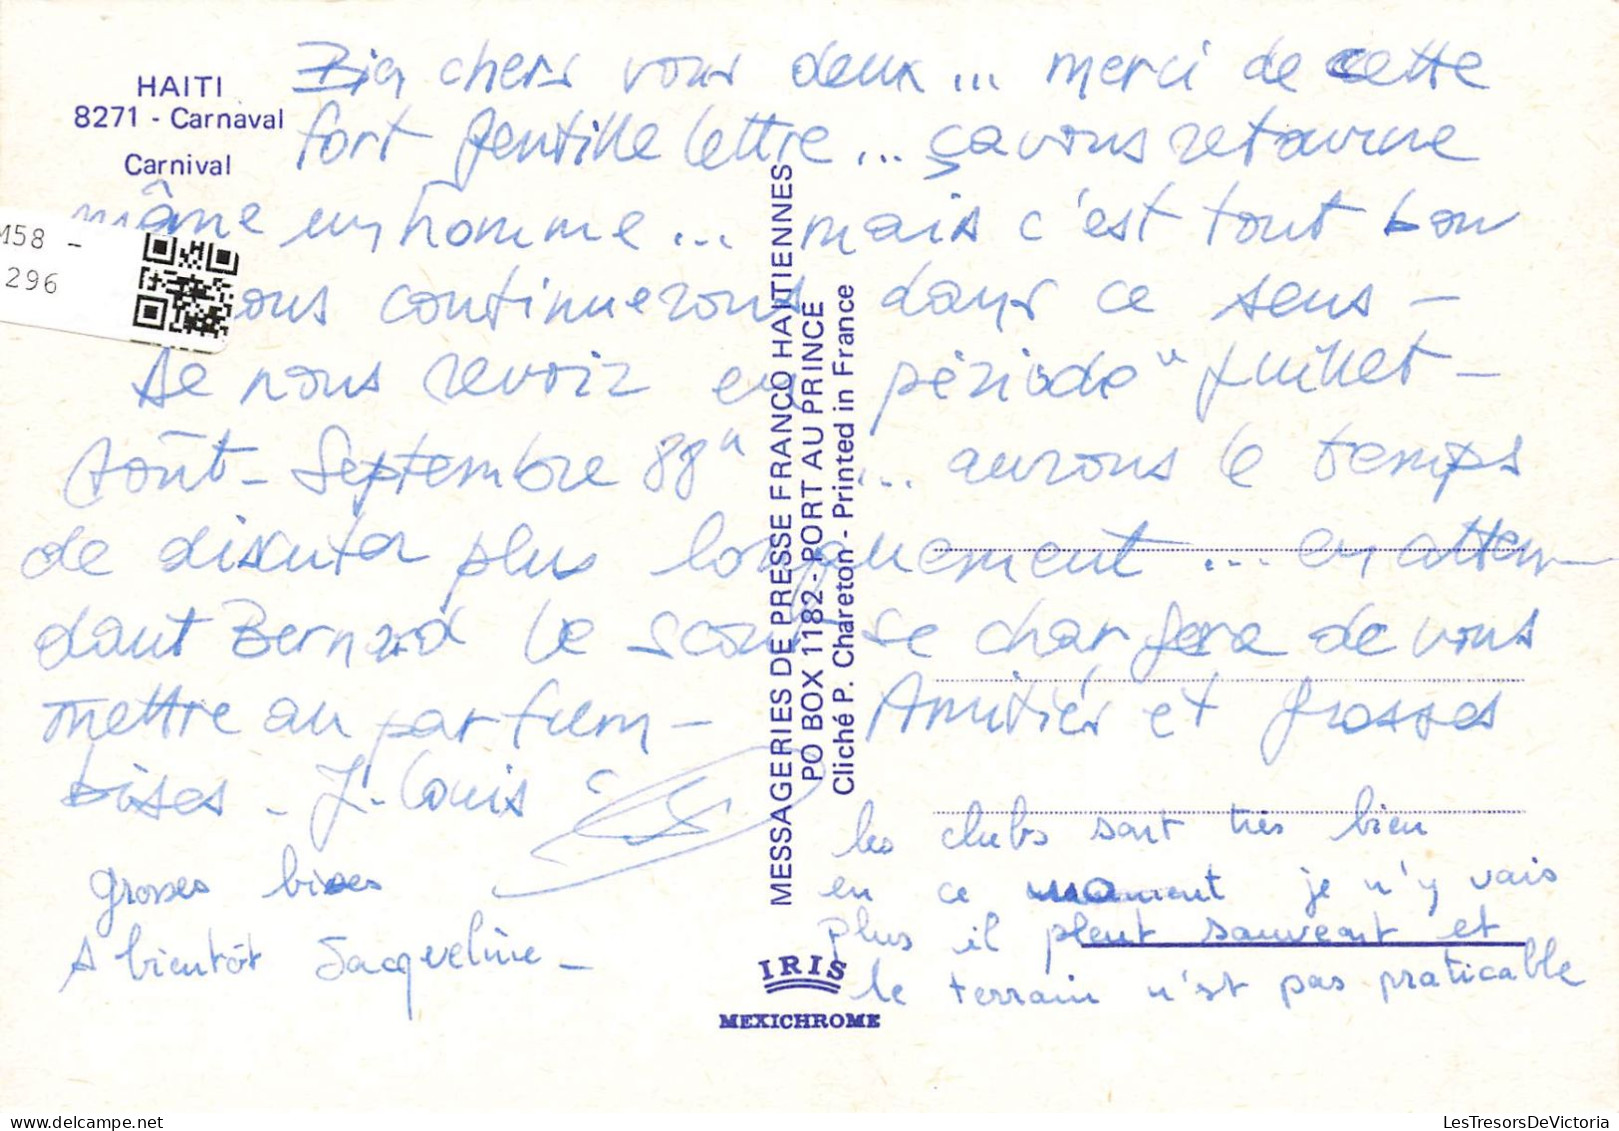 HAITI
8271 - Carnaval
Carnival
Bien chers vous deux... merci de cette
fort gentille lettre... ça vous retourne
même un homme... mais c'est tout bon
nous continuerons dans ce sens -
De nous revoir en période "Juillet -
Août - Septembre 88" ... aurons le temps
de discuter plus longuement... en atten-
dant Bernard le se chargera de vous
mettre au parfum - Amitiés et grosses
bises - J. Louis
grosses bises
A bientôt Jacqueline -
les clubs sont très bien
en ce moment je n'y vais
plus il pleut souvent et
le terrain n'est pas praticable
MESSAGERIES DE PRESSE FRANCO HAITIENNES
PO BOX 1182 - PORT AU PRINCE
Cliché P. Chareton - Printed in France
IRIS
MEXICHROME
M58 -
296
LesTresorsDeVictoria